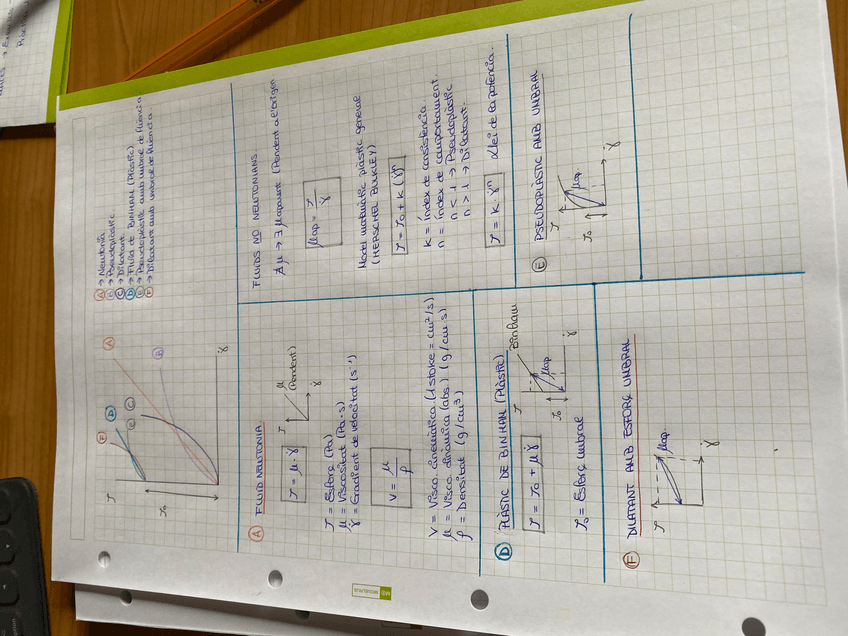 Ⓐ → Newtonià
Ⓑ → Pseudoplàstic
Ⓒ → Dilatant.
Ⓓ → Fluid de BINHAM (Plàstic).
Ⓔ → Pseudoplàstic amb umbral de fluència
Ⓕ → Dilatant amb umbral de fluència.
τ
τ₀
Ⓕ
Ⓓ
Ⓔ
Ⓒ
Ⓑ
Ⓐ
γ̇
Ⓐ FLUID NEWTONIÀ
τ = μ · γ̇
τ
μ
(Pendent)
γ̇
τ = Esforç (Pa)
μ = Viscositat (Pa·s)
γ̇ = Gradient de velocitat (s⁻¹)
V = μ / ρ
V = Visco. cinemàtica (1 stoke = cm²/s)
μ = Visco. dinàmica (abs.) (g/cm·s)
ρ = Densitat (g/cm³)
FLUIDS NO NEWTONIANS.
μap = τ / γ̇
Model matemàtic plàstic general
(HERSCHEL BULKLEY)
τ = τ₀ + K (γ̇)ⁿ
K = índex de consistència
n = índex de comportament
n < 1 → Pseudoplàstic
n > 1 → Dilatant.
τ = K · γ̇ⁿ
llei de la potència.
Ⓓ PLÀSTIC DE BINHAM (Plàstic)
τ = τ₀ + μ γ̇
τ
τ₀
Binham
μap
γ̇
τ₀ = Esforç umbral
Ⓔ PSEUDOPLÀSTIC AMB UMBRAL
τ
τ₀
μap
γ̇
Ⓕ DILATANT AMB ESFORÇ UMBRAL
τ
μap
γ̇